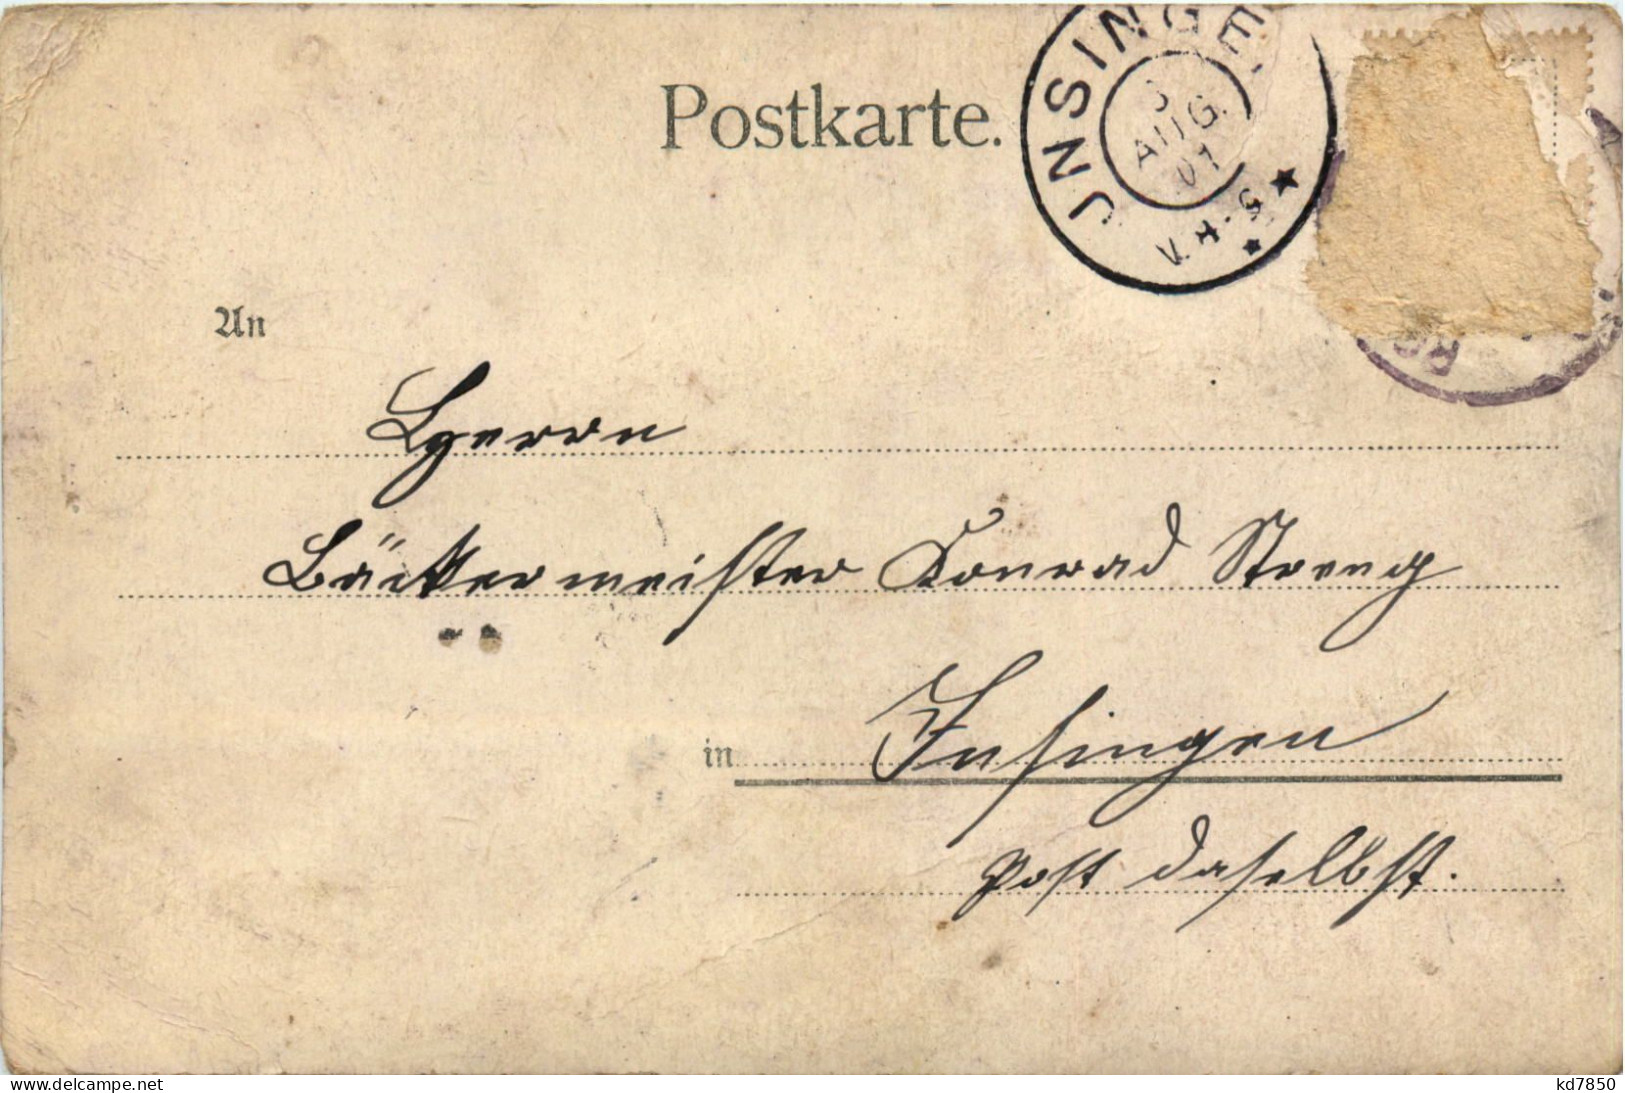 Postkarte.
JNSINGE
AUG.
01
V.
An
Herrn
Bäckermeister Konrad Streng
in Insingen
Post daselbst.
www.delcampe.net
kd7850